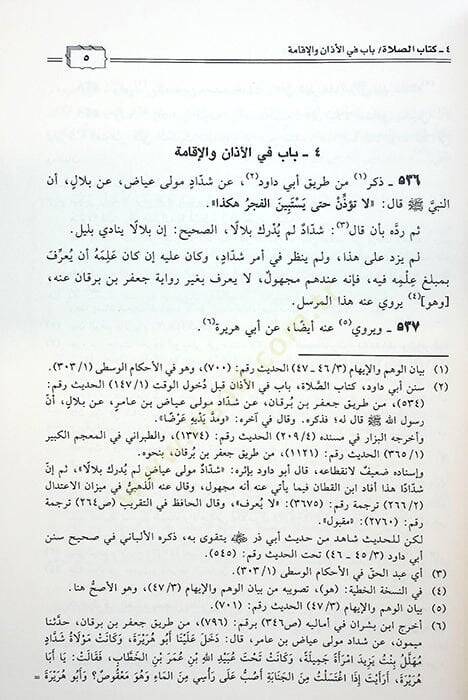 ٤ - كتاب الصلاة/ باب في الأذان والإقامة
٥
٤ - باب في الأذان والإقامة
٥٣٦ - ذكر(١) من طريق أبي داود(٢)، عن شدّاد مولى عياض، عن بلال، أن
النبيّ ﷺ قال: «لا تؤذِّنْ حتى يَسْتَبِينَ الفجرُ هكذا».
ثم ردَّه بأن قال(٣): شدّادٌ لم يُدرك بلالًا، الصحيح: إن بلالًا ينادي بليل.
لم يزد على هذا، ولم ينظر في أمر شدّادٍ، وكان عليه إن كان عَلِمَهُ أن يُعرِّف
بمبلغ عِلْمِه فيه، فإنه عندهم مجهولٌ، لا يعرف بغير رواية جعفر بن برقان عنه،
[وهو](٤) يروي عنه هذا المرسل.
٥٣٧ - ويروي(٥) عنه أيضًا، عن أبي هريرة(٦).
(١) بيان الوهم والإيهام (٣/ ٤٦ - ٤٧) الحديث رقم: (٧٠٠)، وهو في الأحكام الوسطى (١/ ٣٠٣).
(٢) سنن أبي داود، كتاب الصَّلاة، باب في الأذان قبل دُخول الوقت (١/ ١٤٧) الحديث رقم:
(٥٣٤)، من طريق جعفر بن بُرقان، عن شداد مولى عياض بن عامر، عن بلال، أنّ
رسول الله ﷺ قال له؛ فذكره. وقال في آخره: «ومدَّ يَدَيْهِ عَرْضًا».
وأخرجه البزار في مسنده (٤/ ٢٠٩) الحديث رقم: (١٣٧٤)، والطبراني في المعجم الكبير
(١/ ٣٦٥) الحديث رقم: (١١٢١)، من طريق جعفر بن بُرقان، بنحوه.
وإسناده ضعيفٌ لانقطاعه، قال أبو داود بإثره: «شدّادٌ مولى عياض لم يُدرك بلالًا»، ثم إنّ
شدّادًا هذا أفاد ابن القطان فيما يأتي عنه أنه مجهول، وقال عنه الذّهبيُّ في ميزان الاعتدال
(٢/ ٢٦٦) ترجمة رقم: (٣٦٧٥): «لا يُعرف»، وقال الحافظ في التقريب (ص٢٦٤) ترجمة
رقم: (٢٧٦٠): «مقبول».
لكن للحديث شاهد من حديث أبي ذر ﵁ يتقوى به، ذكره الألباني في صحيح سنن
أبي داود (٣/ ٤٥ - ٤٦) تحت الحديث رقم: (٥٤٥).
(٣) أي عبد الحقّ في الأحكام الوسطى (١/ ٣٠٣).
(٤) في النسخة الخطية: (هو)، تصويبه من بيان الوهم والإيهام (٣/ ٤٧)، وهو الأصحّ هنا.
(٥) بيان الوهم والإيهام (٣/ ٤٧) الحديث رقم: (٧٠١).
(٦) أخرج ابن بشران في أماليه (ص٣٤٦) برقم: (٧٩٦)، من طريق جعفر بن برقان، حدَّثنا
ميمون، عن شداد مولى عياض بن عامر، قال: دَخَلَ عَلَيْنَا أَبُو هُرَيْرَةَ، وَكَانَتْ مَوْلَاةُ شَدَّادٍ
مُهَلَّلُ بِنْتُ يَزِيدَ امْرَأَةً جَمِيلَةً، وَكَانَتْ تَحْتَ عُبَيْدِ اللهِ بْنِ عُمَرَ بْنِ الخَطَّابِ، فَقَالَتْ: يَا أَبَا
هُرَيْرَةَ، أَرَأَيْتَ إِذَا اغْتَسَلْتُ مِنَ الجَنَابَةِ أَصُبُّ عَلَى رَأْسِي مِنَ المَاءِ وَهُوَ مَعْقُوصٌ؟ وَأَبُو هُرَيْرَةَ =